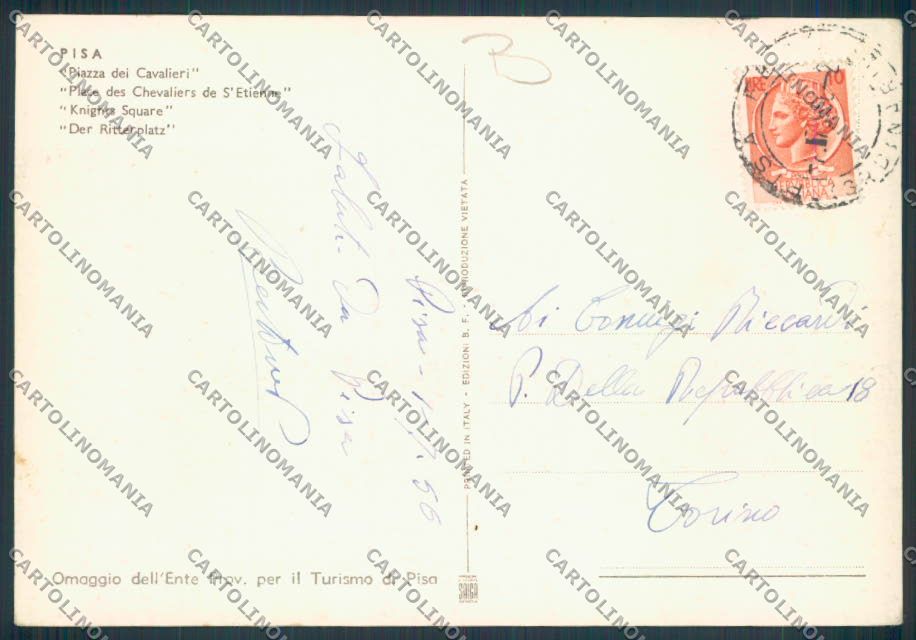 PISA
"Piazza dei Cavalieri"
"Place des Chevaliers de S'Etienne"
"Knights Square"
"Der Ritterplatz"
B
LIRE 10
REPUBBLICA
ITALIANA
Pisa
Saluti da Pisa
PRINTED IN ITALY - EDIZIONI B. F. - RIPRODUZIONE VIETATA
Ai Coniugi Riccardi
P. Della Repubblica 18
Torino
Omaggio dell'Ente Prov. per il Turismo di Pisa
SAIGA
CARTOLINOMANIA